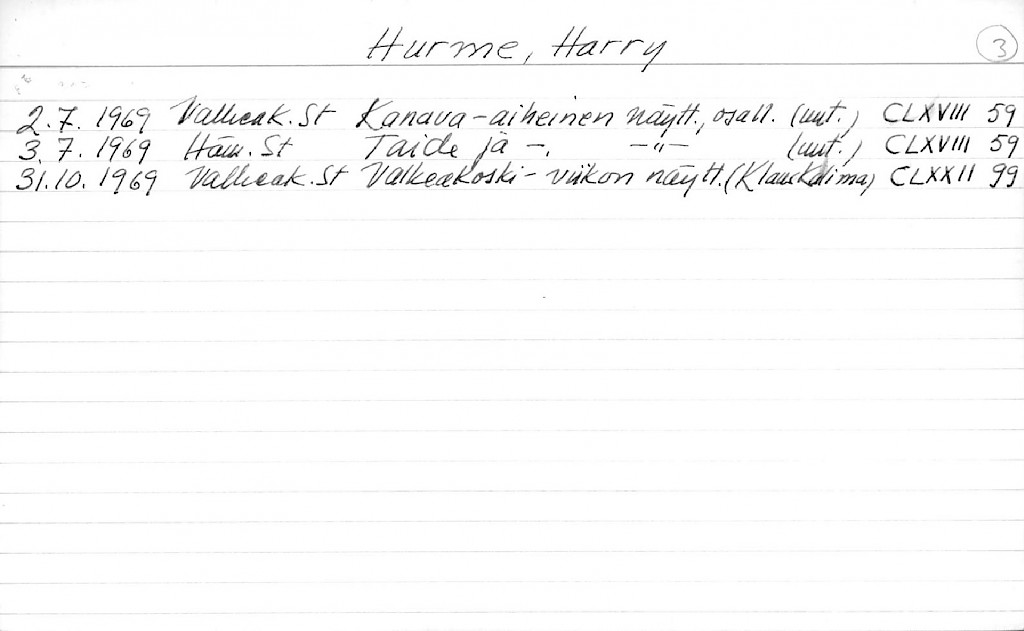 Hurme, Harry 3
2.7. 1969 Valkeak. St Kanava-aiheinen näytt., osall. (uut.) CLXVIII 59
3.7. 1969 Häm. St Taide ja -. -"- (uut.) CLXVIII 59
31.10. 1969 Valkeak. St Valkeakoski-viikon näytt. CLXXII 99